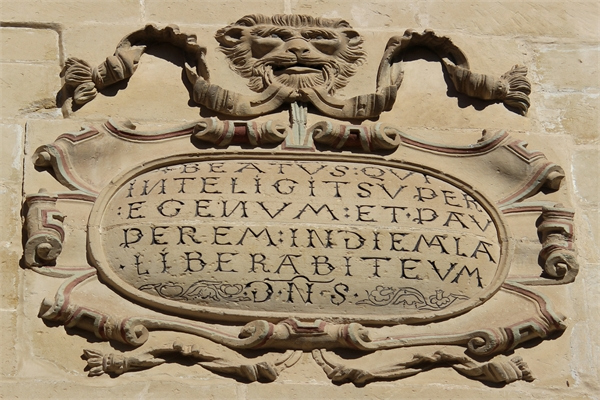 BEATUS:QUI
INTELIGITSUPER
:EGENUM:ET:PAU
PEREM:INDIEMALA
:LIBERABITEUM
:DNS: